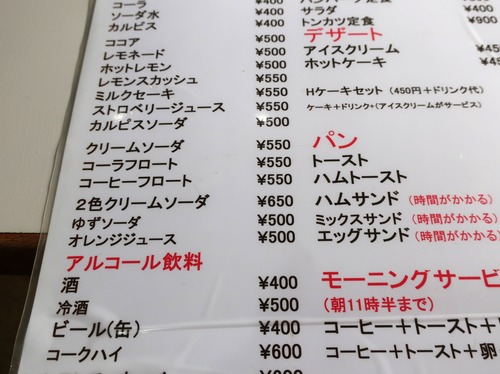 コーラ ¥400
ソーダ水 ¥400
カルピス ¥400
ココア ¥500
レモネード ¥500
ホットレモン ¥500
レモンスカッシュ ¥550
ミルクセーキ ¥550
ストロベリージュース ¥550
カルピスソーダ ¥500
クリームソーダ ¥550
コーラフロート ¥550
コーヒーフロート ¥550
2色クリームソーダ ¥650
ゆずソーダ ¥500
オレンジジュース ¥500
アルコール飲料
酒 ¥400
冷酒 ¥500
ビール(缶) ¥400
コークハイ ¥600
サラダ ¥400
トンカツ定食 ¥900
デザート
アイスクリーム
ホットケーキ
Hケーキセット (450円+ドリンク代)
ケーキ+ドリンク+(アイスクリームがサービス)
パン
トースト
ハムトースト
ハムサンド (時間がかかる)
ミックスサンド (時間がかかる)
エッグサンド (時間がかかる)
モーニングサービ
(朝11時半まで)
コーヒー+トースト+
コーヒー+トースト+卵